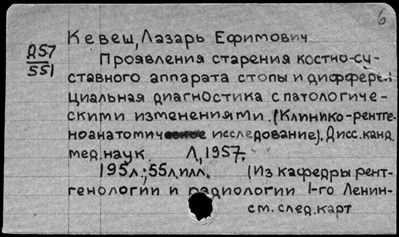 6
Кевеш, Лазарь Ефимович
Д57
551
Проявления старения костно-су-
ставного аппарата стопы и дифферен
циальная диагностика с патологиче-
скими изменениями. (Клинико-рентге-
ноанатомическое исследование). Дисс. канд.
мед. наук. Л, 1957.
195л.; 55л.илл. (Из кафедры рент-
генологии и радиологии 1-го Ленин-
см. след. карт